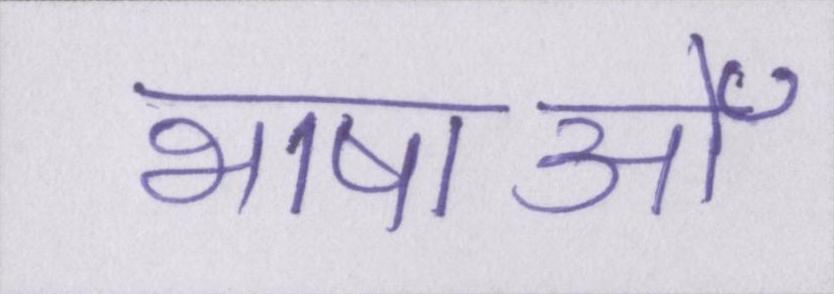 भाषाओं